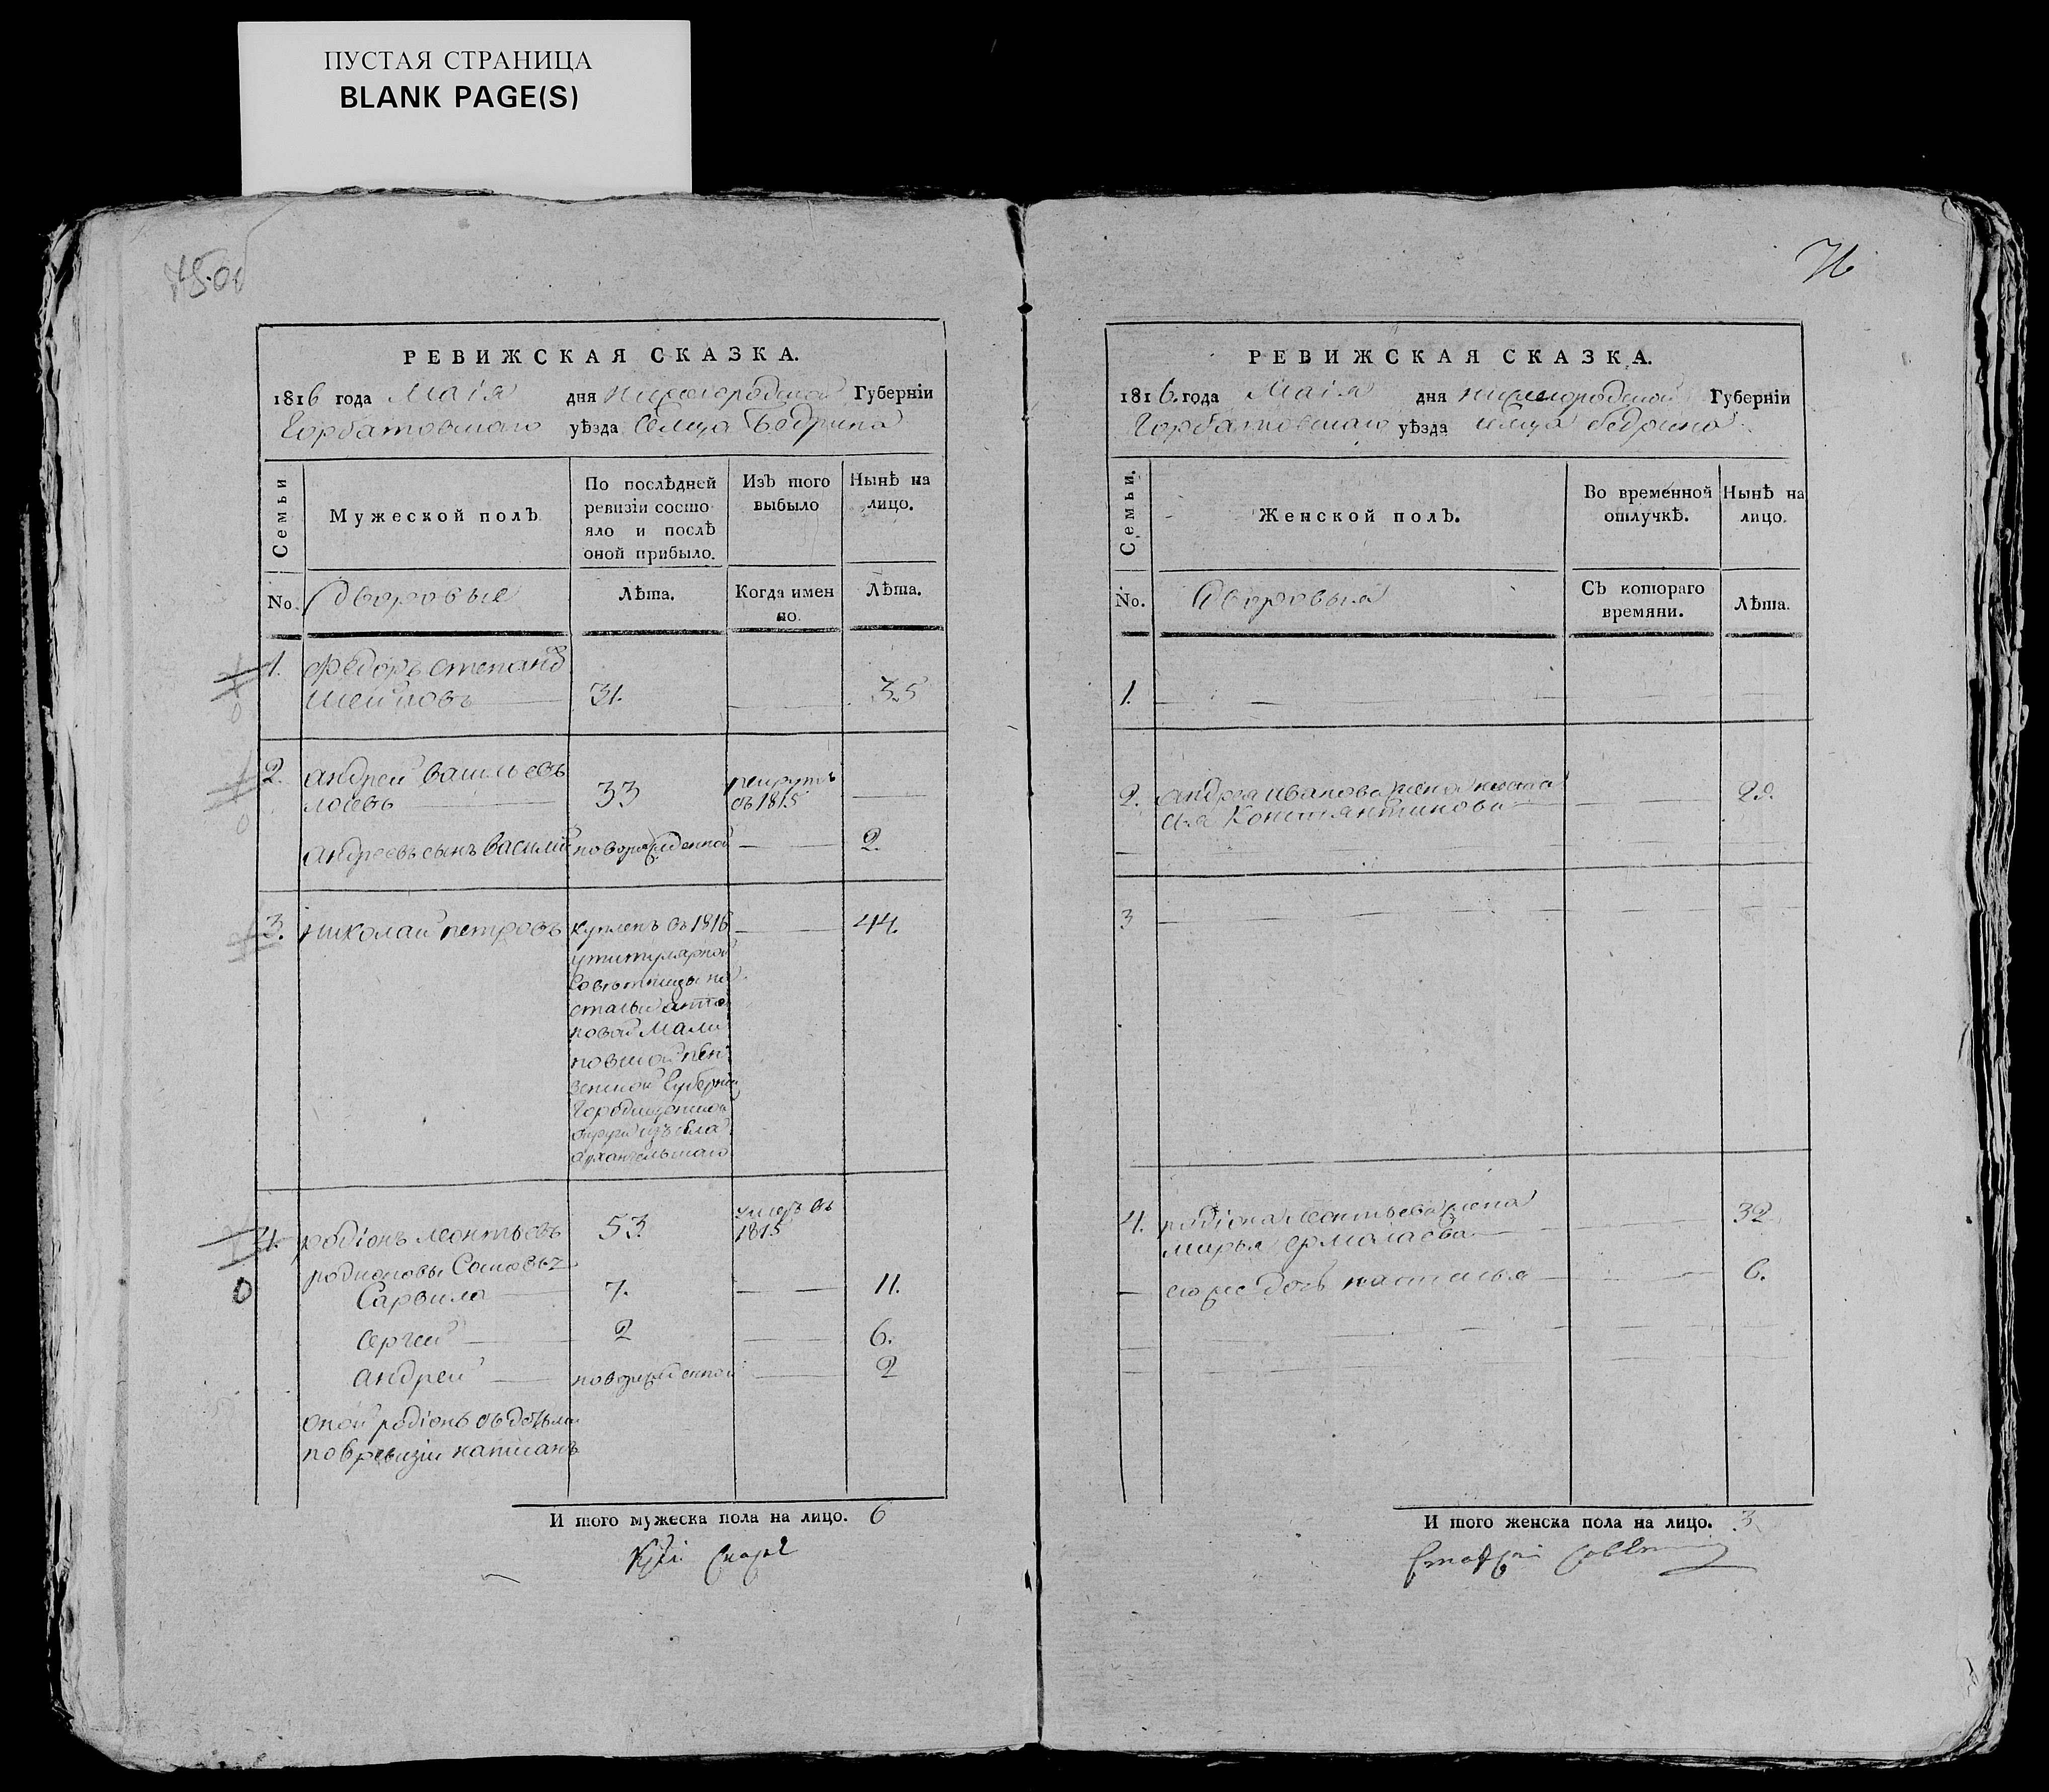 ПУСТАЯ СТРАНИЦА
BLANK PAGE(S)
75 об
РЕВИЖСКАЯ СКАЗКА.
1816 года Маія дня нижегородской Губерніи
Горбатовскаго уѣзда Селца Бедрина
Семьи
Мужеской полъ
По послѣдней ревизіи состояло и послѣ оной прибыло.
Изъ того выбыло
Нынѣ на лицо.
No.
дворовые
Лѣта.
Когда имен но.
Лѣта.
1. Федоръ степановъ
31. 35
2. андрей васильевъ
лосевъ 33 рекрутъ въ 1815
андреевъ сынъ василий новорожденной 2.
3. николай петровъ купленъ въ 1816 44.
у титулярной
советницы на
стасьи анто
новой Мали
новской пен
зенской Губернии
Городищенской
округи изъ села
архангельскаго
4. родіонъ леонтьевъ 53. умеръ въ 1815
родионовы Сыновья
Сарвила 7. 11.
сергей 2 6.
андрей новорожденной 2
оной родіонъ съ детьми
по 6 ревизіи написанъ
И того мужеска пола на лицо. 6
76
РЕВИЖСКАЯ СКАЗКА.
1816. года Маія дня нижегородской Губерніи
Горбатовскаго уѣзда селца бедрина
Семьи.
Женской полъ.
Во временной отлучкѣ.
Нынѣ на лицо.
No.
дворовыя
Съ котораго времяни.
Лѣта.
1.
2. андрея иванова жена наста
сья Константинова
3
4. родіона леонтьева жена
марья ермолаева 32
ево же дочь настасья 6.
И того женска пола на лицо. 3